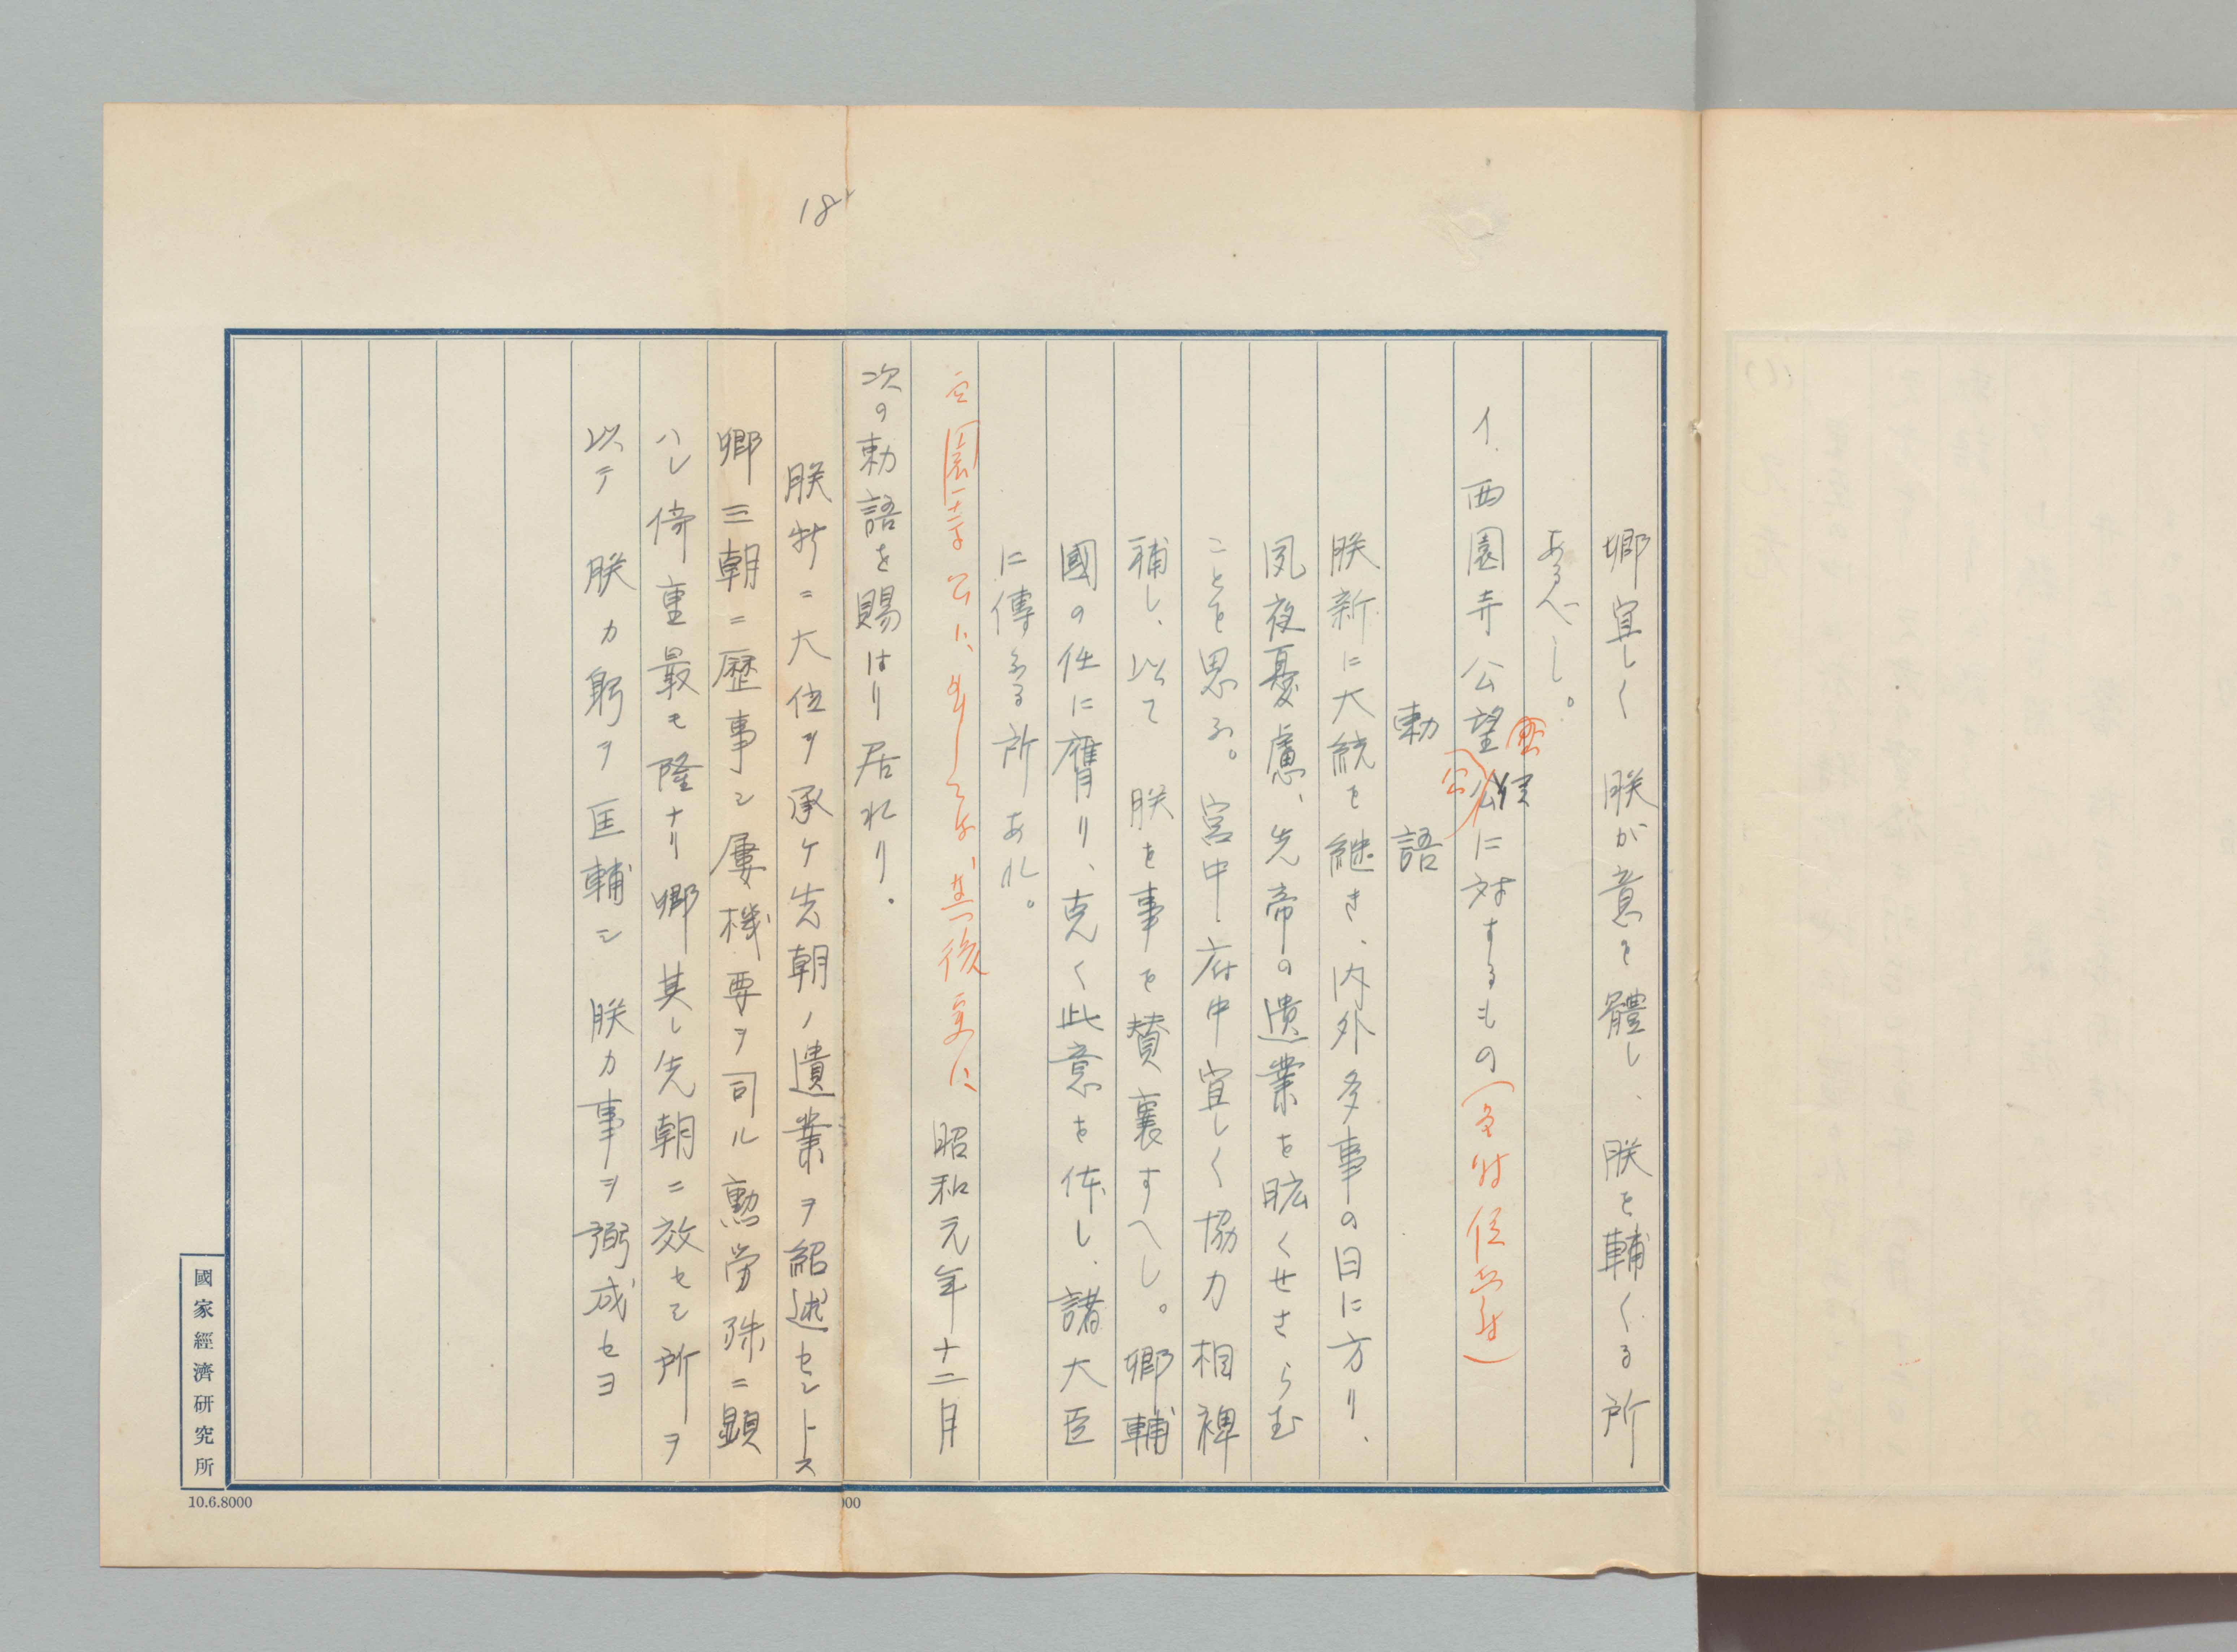 18
卿宜しく　朕が意を體し、朕を輔くる所
あるべし。
イ．西園寺公望公に対するもの
侯
公
勅語
朕新に大統を継き、内外多事の日に方り、
夙夜憂慮、先帝の遺業を昿くせさらむ
ことを思ふ。宮中府中宜しく協力相裨
補し、以て　朕を事を賛襄すへし。卿輔
國の任に膺り、克く此意を体し、諸大臣
に傳ふる所あれ。
西園寺公に　其後更に昭和元年十二月
次の勅語を賜はり居れり．
朕新ニ大位ヲ承ケ先朝ノ遺業ヲ紹述セントス
卿三朝ニ歴事シ屢機要ヲ司ル勲労殊ニ顕
ハレ倚重最モ隆ナリ卿其レ先朝ニ效セシ所ヲ
以テ　朕カ躬ヲ匡輔シ　朕カ事ヲ弼成セヨ
國家經濟研究所
10.6.8000
000